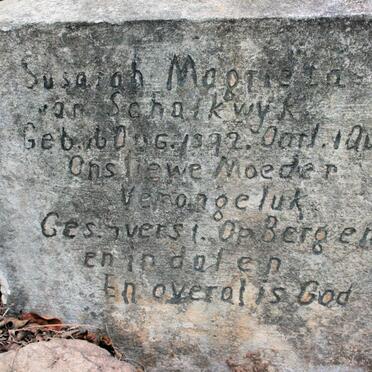 Susarah Magrieta
van Schalkwyk
Geb. 16 Aug. 1892. Oorl. 1
Ons liewe Moeder
Verongeluk
Ges. vers 1.. Op Bergen
en in dalen
En overal is God